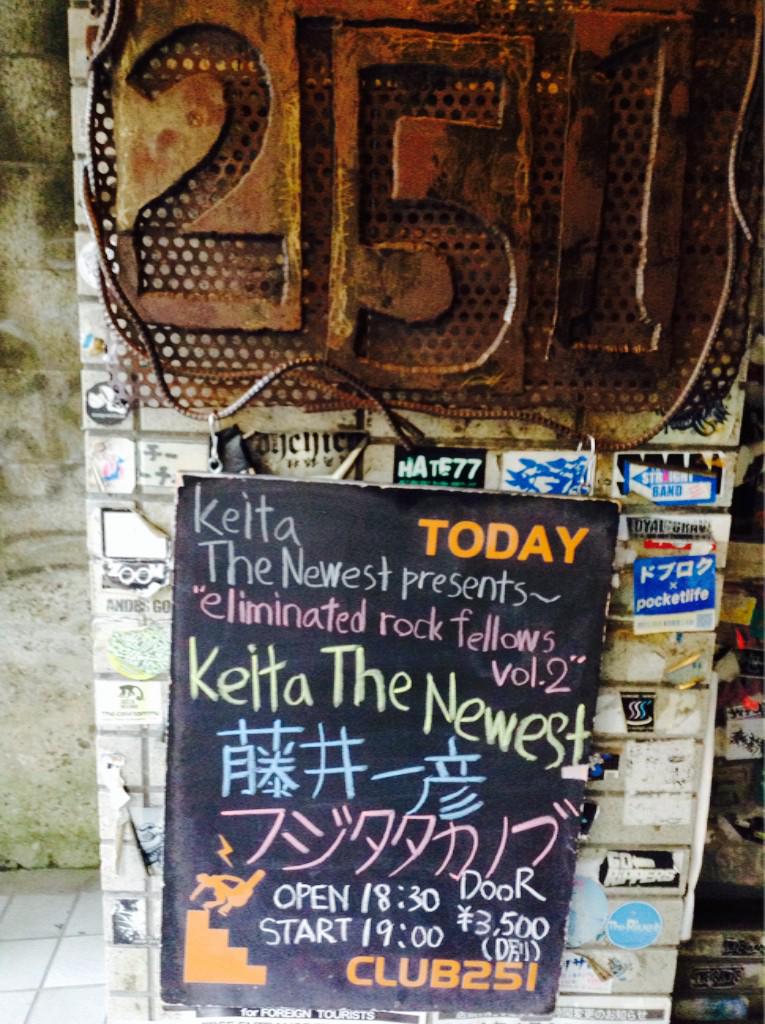 251
HATE77
STRAIGHT
BAND
Keita
TODAY
The Newest presents~
"eliminated rock fellows
vol.2"
Keita The Newest
藤井一彦
フジタタカノブ
OPEN 18:30
DOOR
START 19:00
¥3,500
(D別)
CLUB251
ZOOM
ドブロク
×
pocketlife
RIPPERS
The Rivet
for FOREIGN TOURISTS